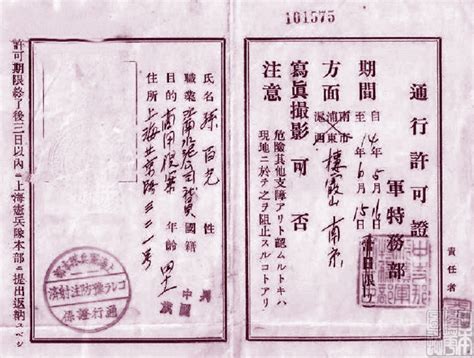 101575
通行許可證
軍特務部
責任者
期間
自14年5月16日
至14年6月15日
方面
南市
浦東
滬西
棲霞山 南京
寫眞撮影 可否
注意
危險其他支障アリト認ムルトキハ
現地ニ於テ之ヲ阻止スルコトアリ
氏名 孫百 性 男
職業 國籍 中國
目的 商用 年齡 四十
住所 上海北京路三二一号
コレラ豫防注射濟
許可期限終了後三日以内ニ上海憲兵隊本部ニ提出返納スベシ